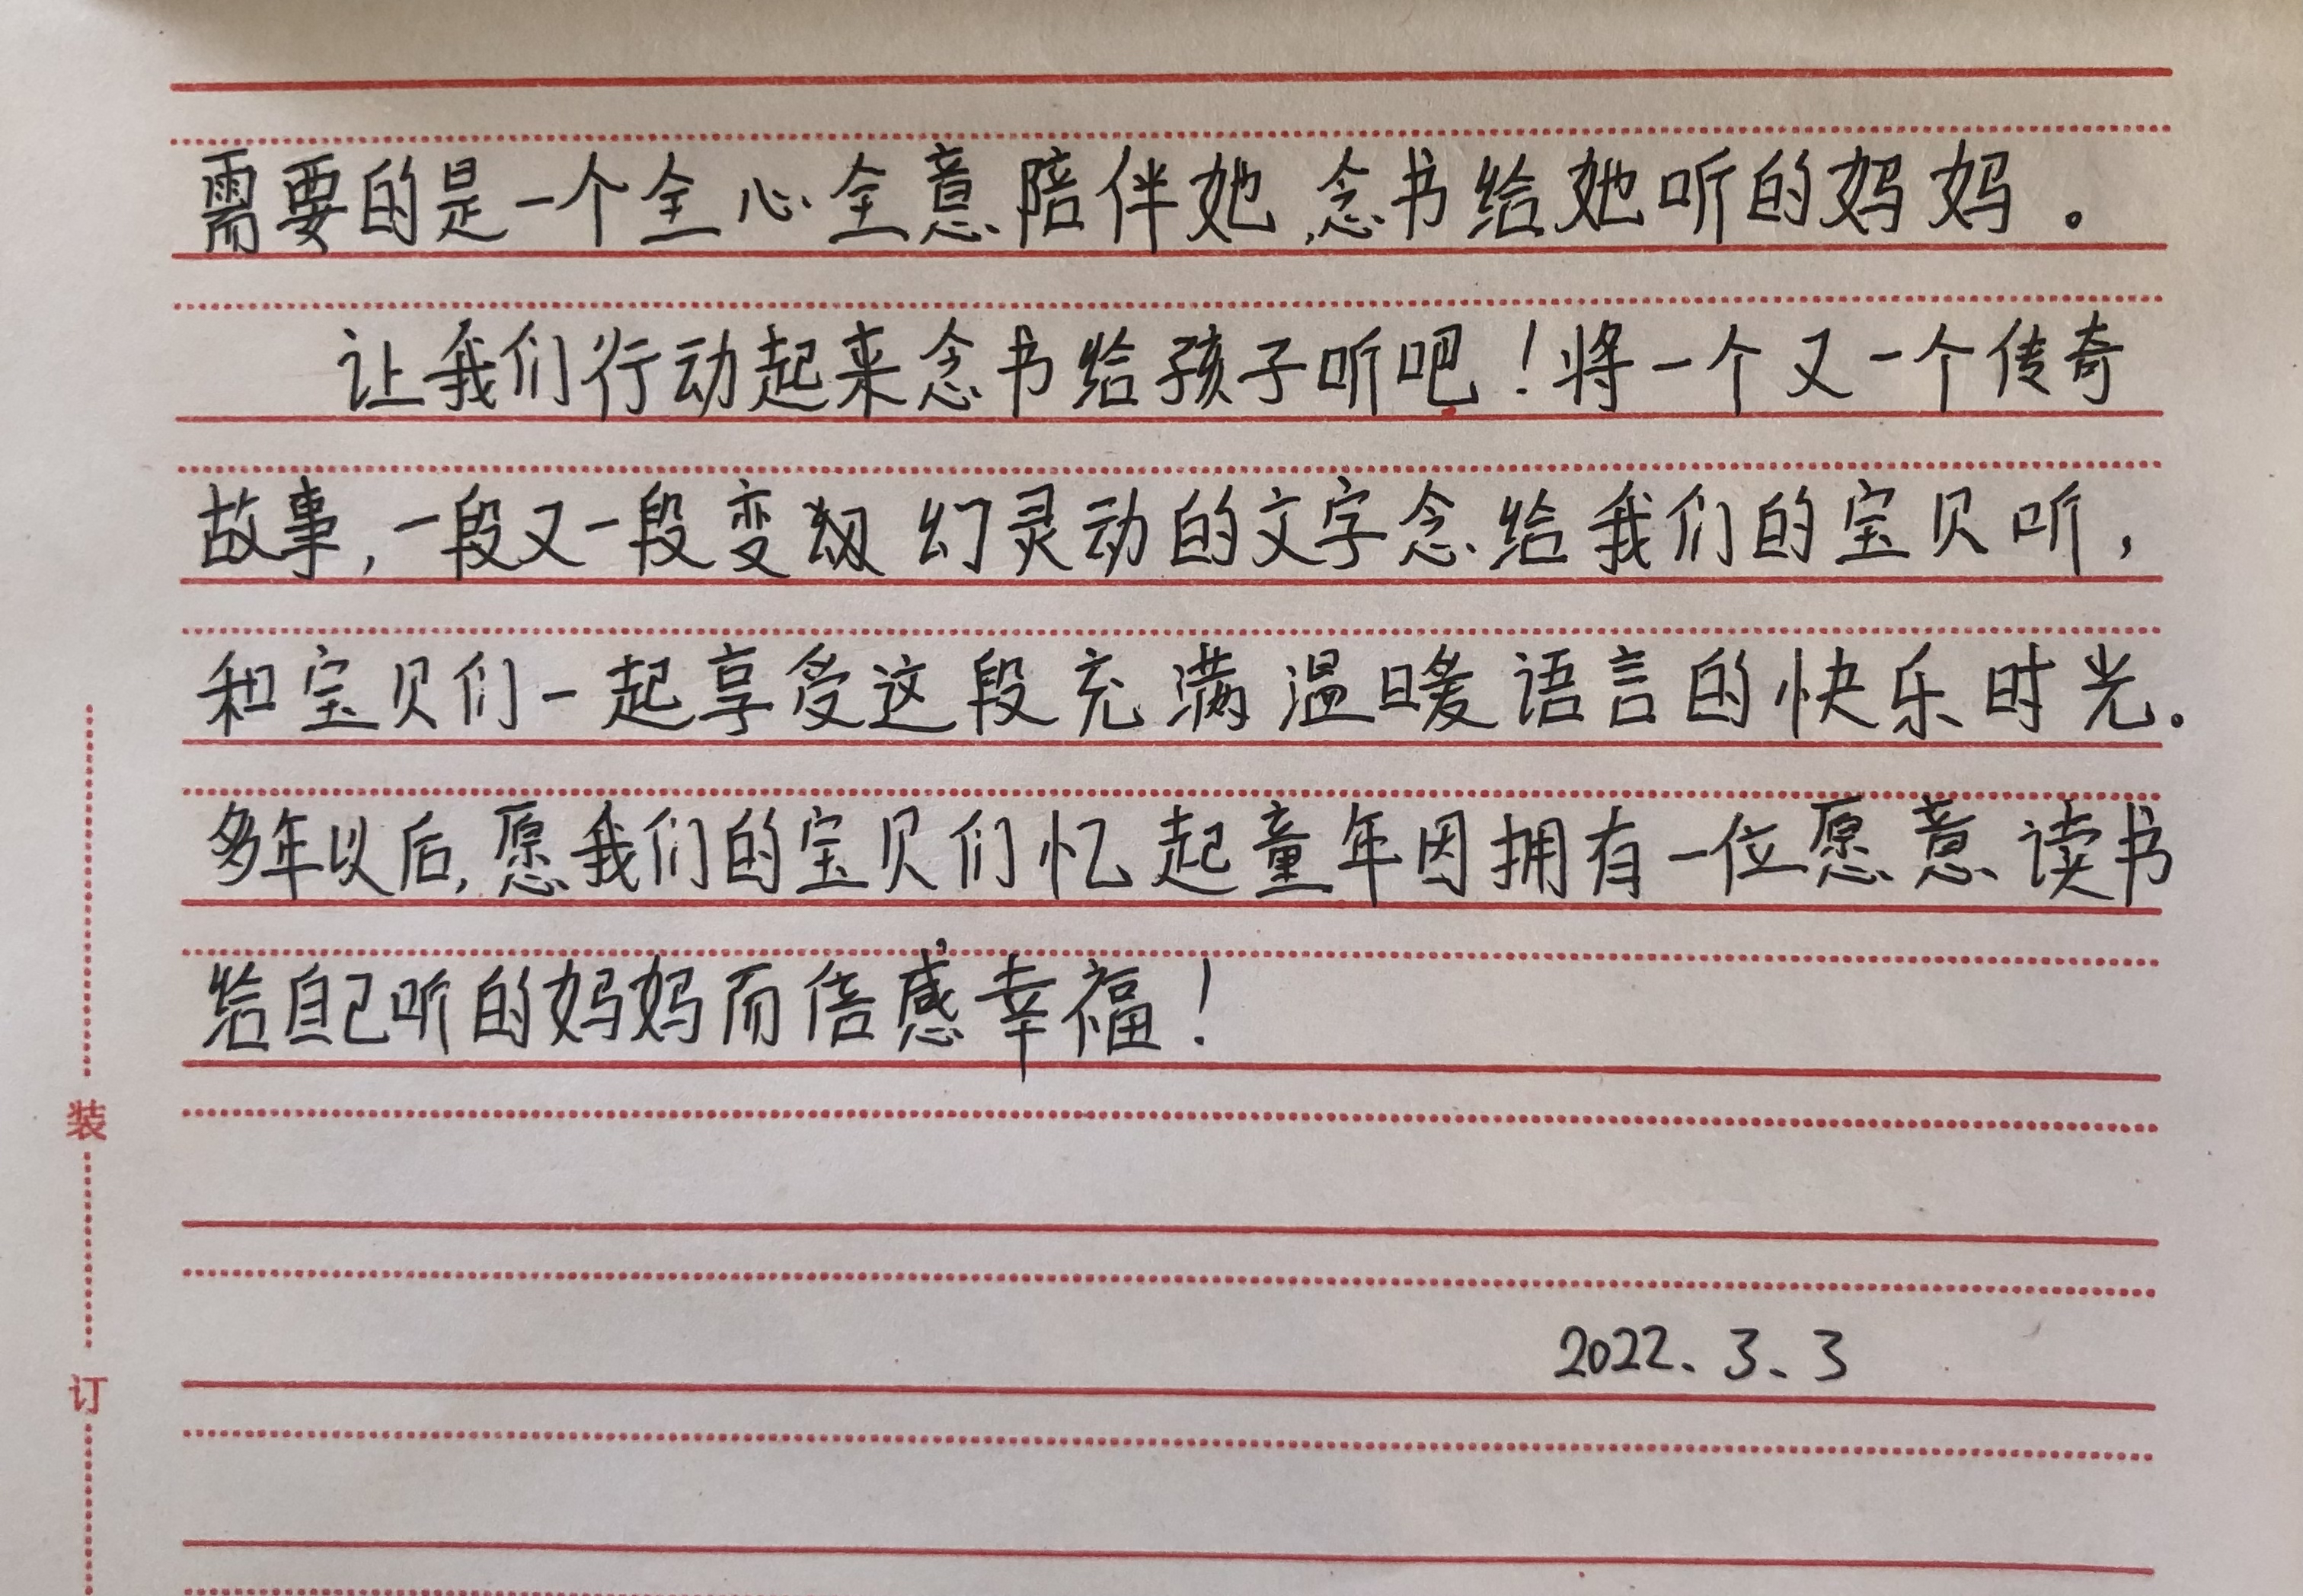 需要的是一个全心全意陪伴她,念书给她听的妈妈。
让我们行动起来念书给孩子听吧！将一个又一个传奇
故事,一段又一段变幻灵动的文字念给我们的宝贝听,
和宝贝们一起享受这段充满温暖语言的快乐时光.
多年以后,愿我们的宝贝们忆起童年因拥有一位愿意读书
给自己听的妈妈而倍感幸福！
装
2022.3.3
订